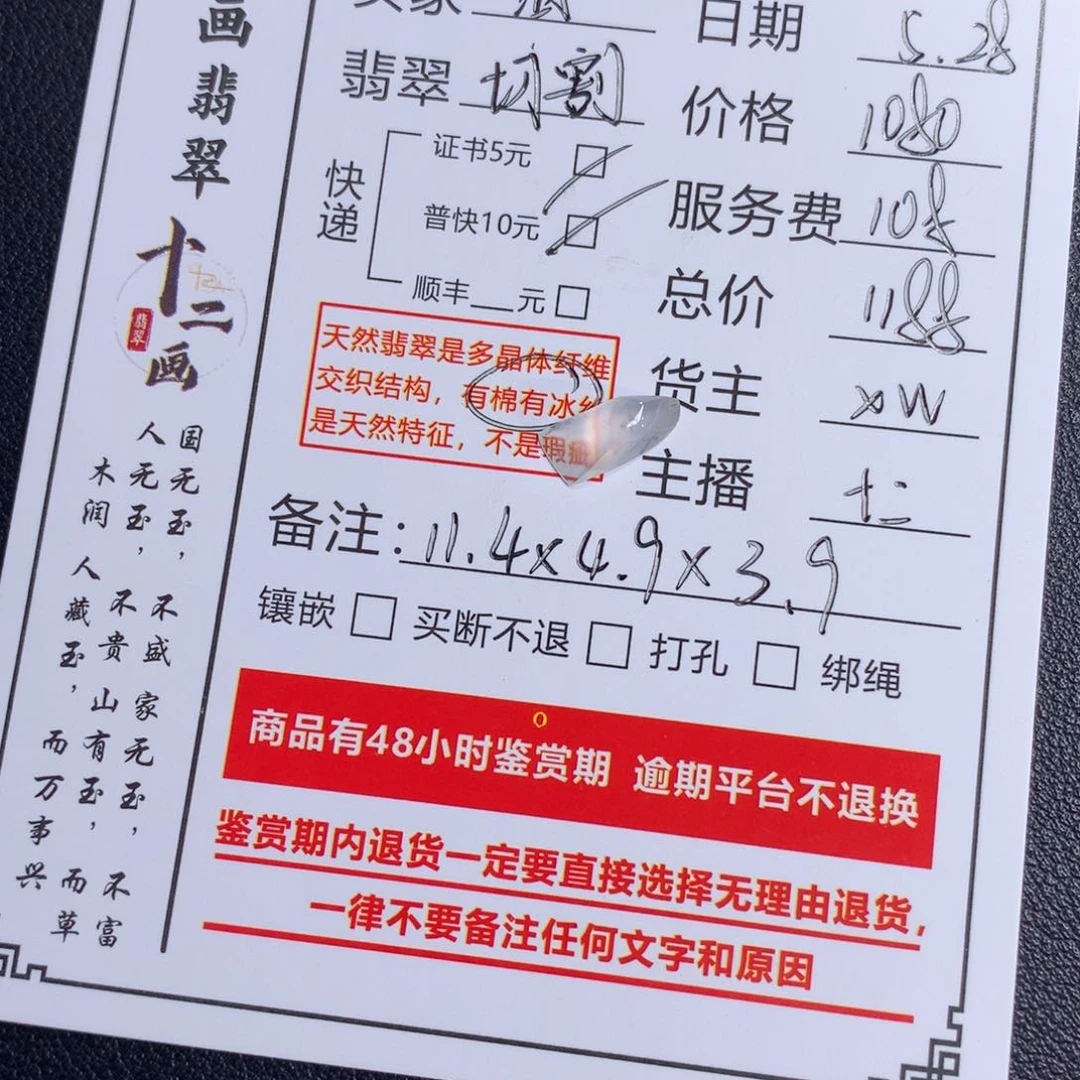 日期 5.28
翡翠 切割
价格 1080
快递
证书5元
普快10元
顺丰__元
服务费 108
总价 1188
天然翡翠是多晶体纤维
交织结构，有棉有冰
是天然特征，不是瑕疵
货主 XW
主播 十二
备注：11.4×4.9×3.9
镶嵌 买断不退 打孔 绑绳
商品有48小时鉴赏期 逾期平台不退换
鉴赏期内退货一定要直接选择无理由退货，
一律不要备注任何文字和原因
画翡翠
十二画
翡翠
国无玉，不盛家无玉，不富
人无玉，不贵山有玉，而草
木润人藏玉，而万事兴